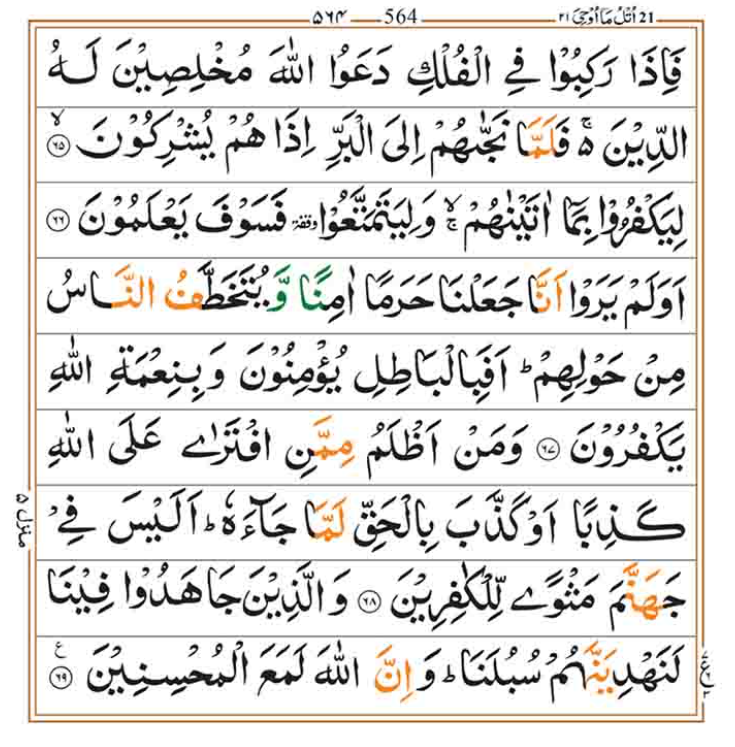 اُتْلُ مَآ اُوْحِیَ ۲۱ 21 564 ۵۶۴
فَاِذَا رَكِبُوْا فِی الْفُلْكِ دَعَوُا اللّٰهَ مُخْلِصِیْنَ لَهُ
الدِّیْنَ ۚ۬ فَلَمَّا نَجّٰىهُمْ اِلَی الْبَرِّ اِذَا هُمْ یُشْرِكُوْنَ ۙ﴿۶۵﴾
لِیَكْفُرُوْا بِمَاۤ اٰتَیْنٰهُمْ ۚۙ وَ لِیَتَمَتَّعُوْا وقفة فَسَوْفَ یَعْلَمُوْنَ ﴿۶۶﴾
اَوَ لَمْ یَرَوْا اَنَّا جَعَلْنَا حَرَمًا اٰمِنًا وَّ یُتَخَطَّفُ النَّاسُ
مِنْ حَوْلِهِمْ ؕ اَفَبِالْبَاطِلِ یُؤْمِنُوْنَ وَ بِنِعْمَةِ اللّٰهِ
یَكْفُرُوْنَ ﴿۶۷﴾ وَ مَنْ اَظْلَمُ مِمَّنِ افْتَرٰی عَلَی اللّٰهِ
كَذِبًا اَوْ كَذَّبَ بِالْحَقِّ لَمَّا جَآءَهٗ ؕ اَلَیْسَ فِیْ
جَهَنَّمَ مَثْوًی لِّلْكٰفِرِیْنَ ﴿۶۸﴾ وَ الَّذِیْنَ جَاهَدُوْا فِیْنَا
لَنَهْدِیَنَّهُمْ سُبُلَنَا ؕ وَ اِنَّ اللّٰهَ لَمَعَ الْمُحْسِنِیْنَ ﴿۶۹﴾ ع
منزل ۵